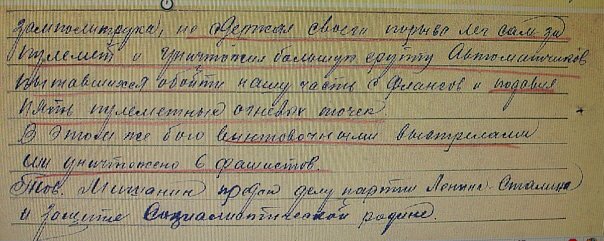 замполитрука, не здержал своего порыва лег сам за
пулемет и уничтожил большую группу Автоматчиков
пытавшихся обойти нашу часть с флангов и подавил
пять пулеметных огневых точек.
В этом же бою винтовочными выстрелами
им уничтожено 6 фашистов.
Тов. Мишанин предан делу партии Ленина-Сталина
и защите Социалистической родине.